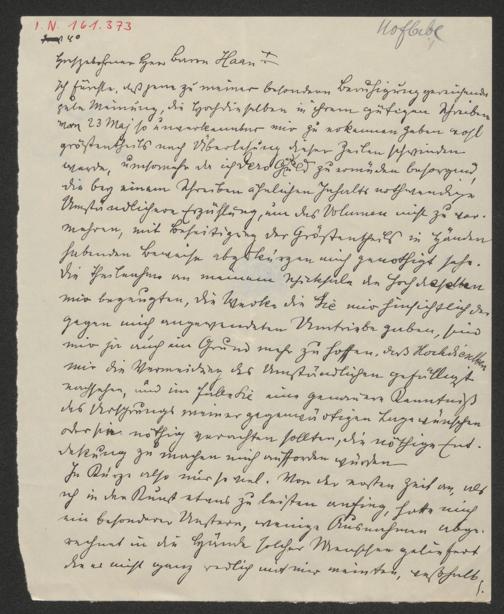 I. N. 161.373
Hochgebohrner Herr Baron Haan
Ich fürchte, daß jene zu meiner besondern Beruhigung gereichende
gute Meinung, die Hochdieselben in Ihrem gütigen Schreiben
vom 23 Maj so unverkennbar mir zu erkennen gaben wohl
größtentheils nach Überlesung dieser Zeilen schwinden
werde, umsomehr da ich dero Geduld zu ermüden besorgend,
die bey einem Schreiben ähnlichen Inhalts nothwendige
Umständlichere Erzählung, um das Volumen nicht zu ver-
mehren, mit Beseitigung der Größtentheils in Händen
habenden Beweise abzukürzen mich genöthigt sehe.
Die Theilnahme an meinem Schicksale die Hochdieselben
mir bezeugten, die Winke die Sie mir hinsichtlich der
gegen mich angewendeten Umtriebe gaben, sind
mir ja auch ein Grund mehr zu hoffen, daß Hochdieselben
mir die Vermeidung des Umständlichen gefälligst
nachsehen, und im Falle Sie eine genauere Kenntniß
des Ursprungs meiner gegenwärtigen Lage wünschen
oder sie nöthig erachten sollten, die nöthige Ent-
deckung zu machen mich auffordern würden
In Kürze also nur so viel. Von der ersten Zeit an, als
ich in der Kunst etwas zu leisten anfing, hatte mich
ein besonderer Unstern, wenige Ausnahmen abge-
rechnet in die Hände solcher Menschen geliefert
die es nicht ganz redlich mit mir meinten, weßhalb